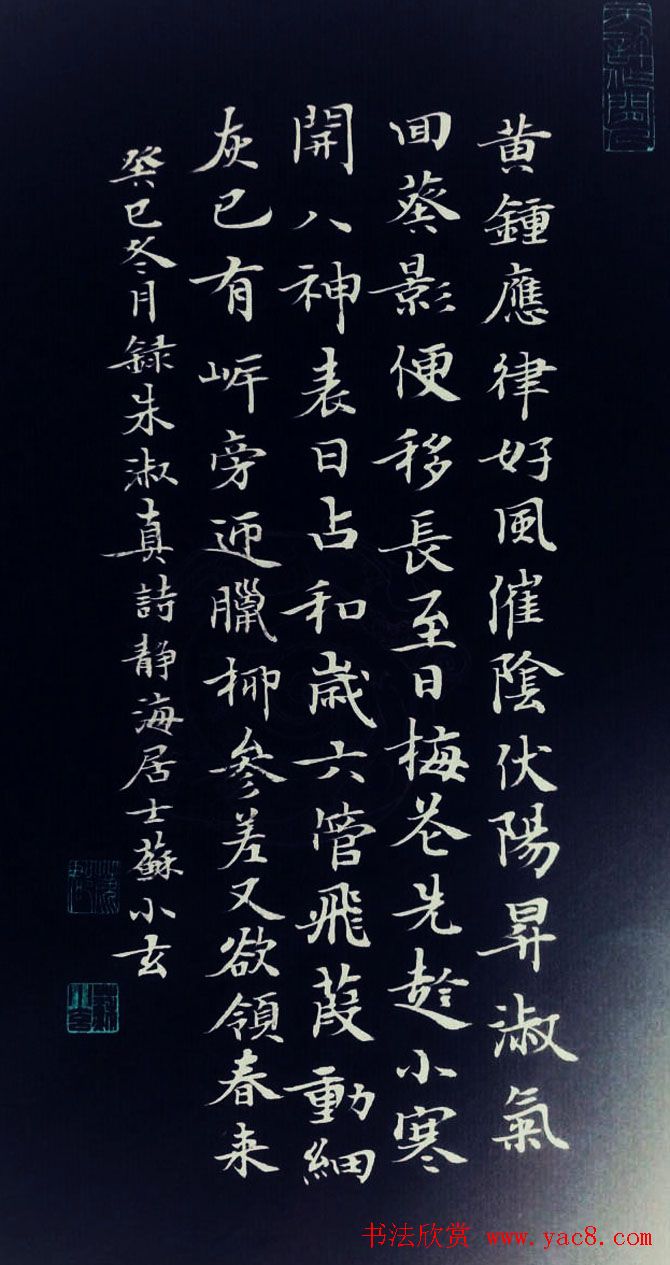 黄鍾應律好風催陰伏陽昇淑氣
回葵影便移長至日梅花先趁小寒
開八神表日占和歲六管飛葭動細
灰已有岍旁迎臘柳參差又欲領春来
癸巳冬月録朱淑真詩静海居士蘇小玄
书法欣赏 www.yac8.com